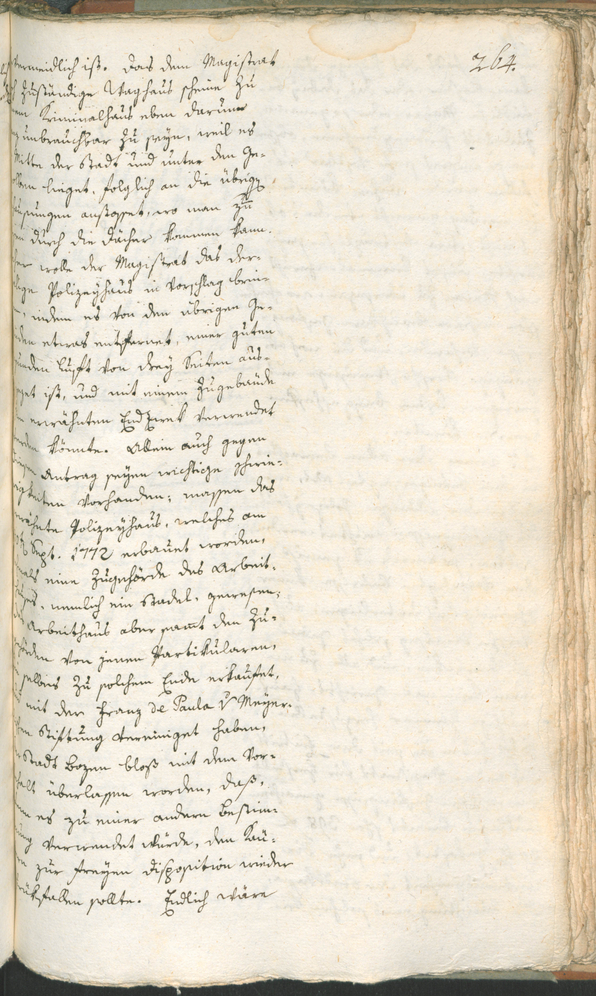 264.
vermeidlich ist. Das dem Magistrat
zuständige Waghaus scheine zu
Kriminalhaus eben darum
unbrauchbar zu seyn, weil es
Mitte der Stadt und unter den Ge-
lieget, folglich an die übrige
anstosset, wo man zu
durch die Dächer kommen kann.
wolle der Magistrat das der-
Polizeyhaus in Vorschlag brin-
, indem es von den übrigen Ge-
den etwas entfernet, einer guten
Luft von drey Seiten aus-
ist, und mit einem Zugebäude
erwähnten Endzwek verwendet
könnte. Allein auch gegen
Antrag seyen wichtige schwie-
rigkeiten vorhanden; massen das
Polizeyhaus, welches am
Sept. 1772 erbauet worden,
eine Zugehörde des Arbeit-
, nemlich ein Stadel, gewesen,
Arbeithaus aber samt den Zu-
von jenen Partikularen,
selbes zu solchem Ende erkaufet,
mit der Franz de Paula v Mayer-
Stiftung vereiniget haben,
Stadt Bozen bloß mit dem Vor-
überlassen worden, daß,
es zu einer andern Bestim-
verwendet würde, den Käu-
zur freyen Disposition wieder
fallen sollte. Endlich wäre